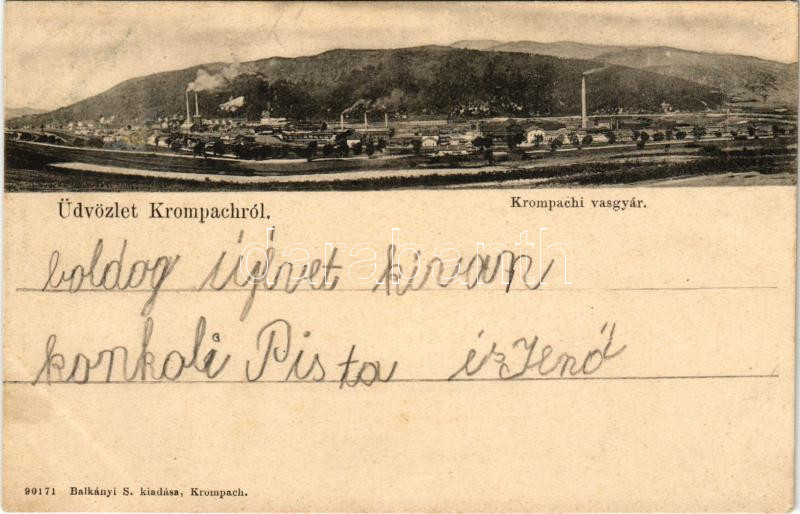 Üdvözlet Krompachról.
Krompachi vasgyár.
darabanth
boldog újévet kivan
konkoli Pista és Jenő
90171 Balkányi S. kiadása, Krompach.